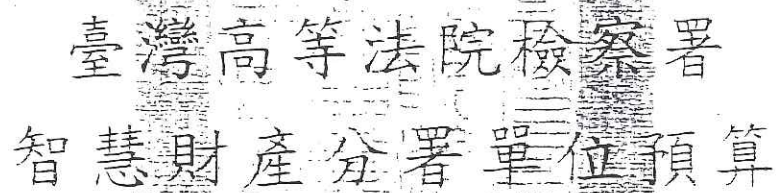 臺灣高等法院檢察署
智慧財產分署單位預算